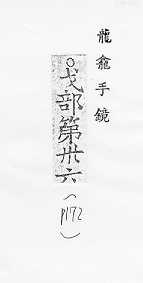 龍龕手鏡
○戈部第卅六
(P172)